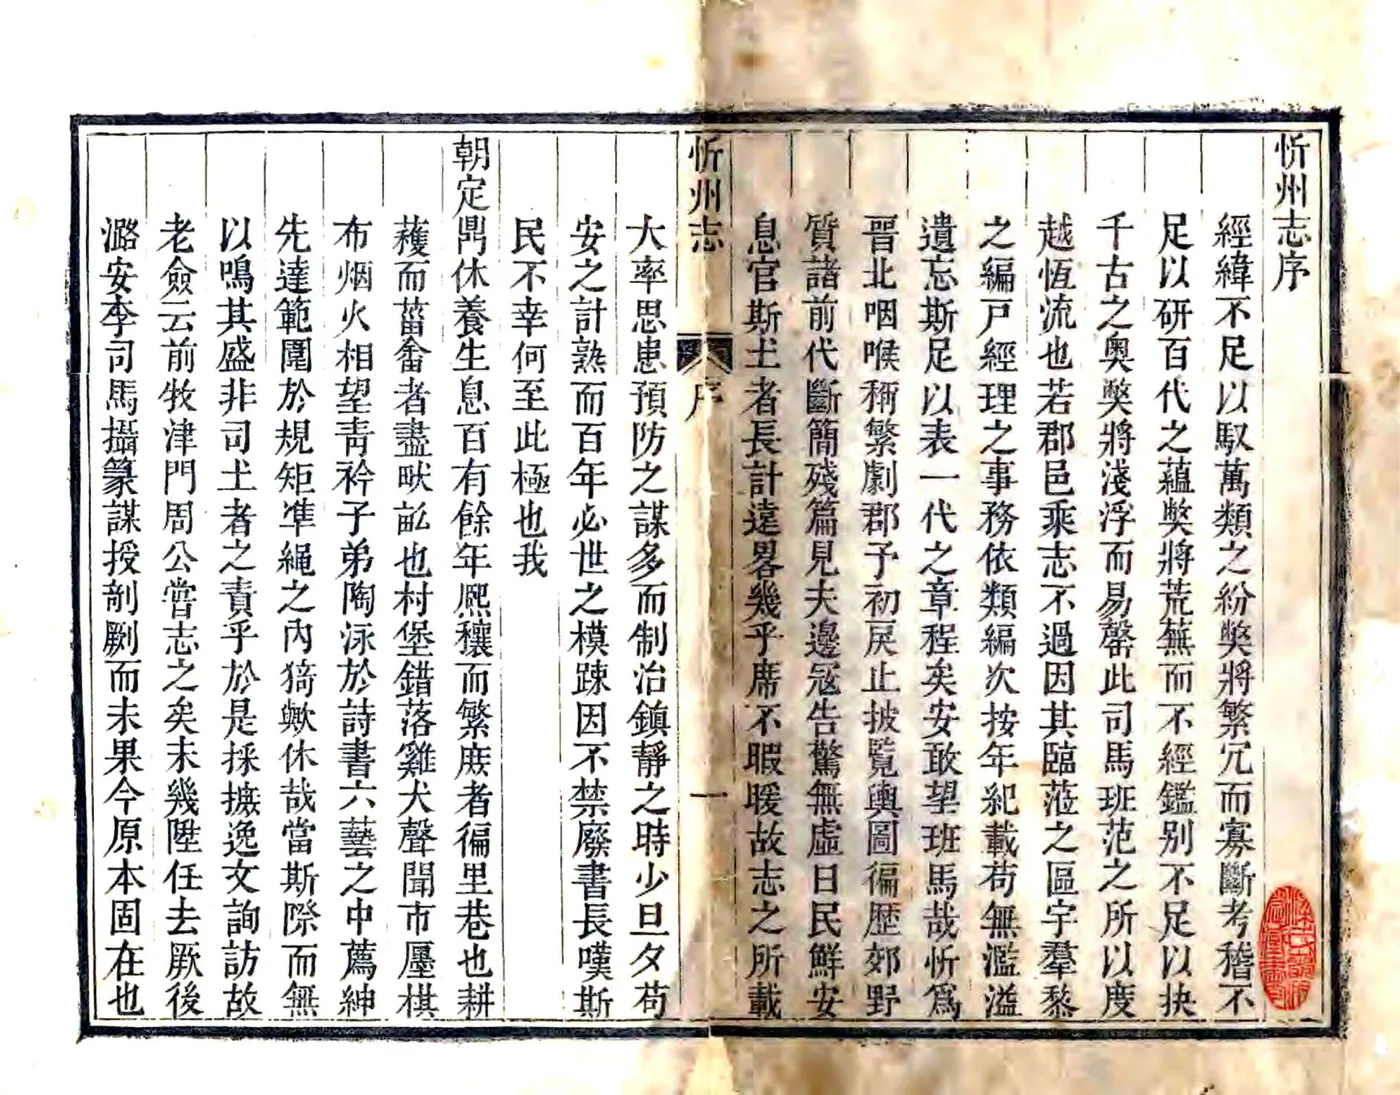 忻州志序
經緯不足以馭萬類之紛獘將繁冗而寡斷考稽不
足以研百代之蘊獘將荒蕪而不經鑑别不足以抉
千古之奥獘將淺浮而易罄此司馬班范之所以度
越恆流也若郡邑乘志不過因其臨蒞之區宇羣黎
之編戸經理之事務依類編次按年紀載苟無濫溢
遺忘斯足以表一代之章程矣安敢望班馬哉忻爲
晋北咽喉稱繁劇郡予初戾止披覧輿圖徧歴郊野
質諸前代斷簡殘篇見夫邊冦告驚無虛日民鮮安
息官斯土者長計遠畧幾乎席不暇暖故志之所載
忻州志
序
一
大率思患預防之謀多而制治鎮靜之時少旦夕苟
安之計熟而百年必世之模踈因不禁廢書長嘆斯
民不幸何至此極也我
朝定鼎休養生息百有餘年熈穰而繁庶者徧里巷也耕
穫而菑畬者盡畎畝也村堡錯落雞犬聲聞市廛棋
布烟火相望靑衿子弟陶泳於詩書六藝之中薦紳
先達範圍於規矩凖繩之內猗歟休哉當斯際而無
以鳴其盛非司土者之責乎於是採摭逸文詢訪故
老僉云前牧津門周公嘗志之矣未幾陞任去厥後
潞安李司馬攝篆謀授剞劂而未果今原本固在也